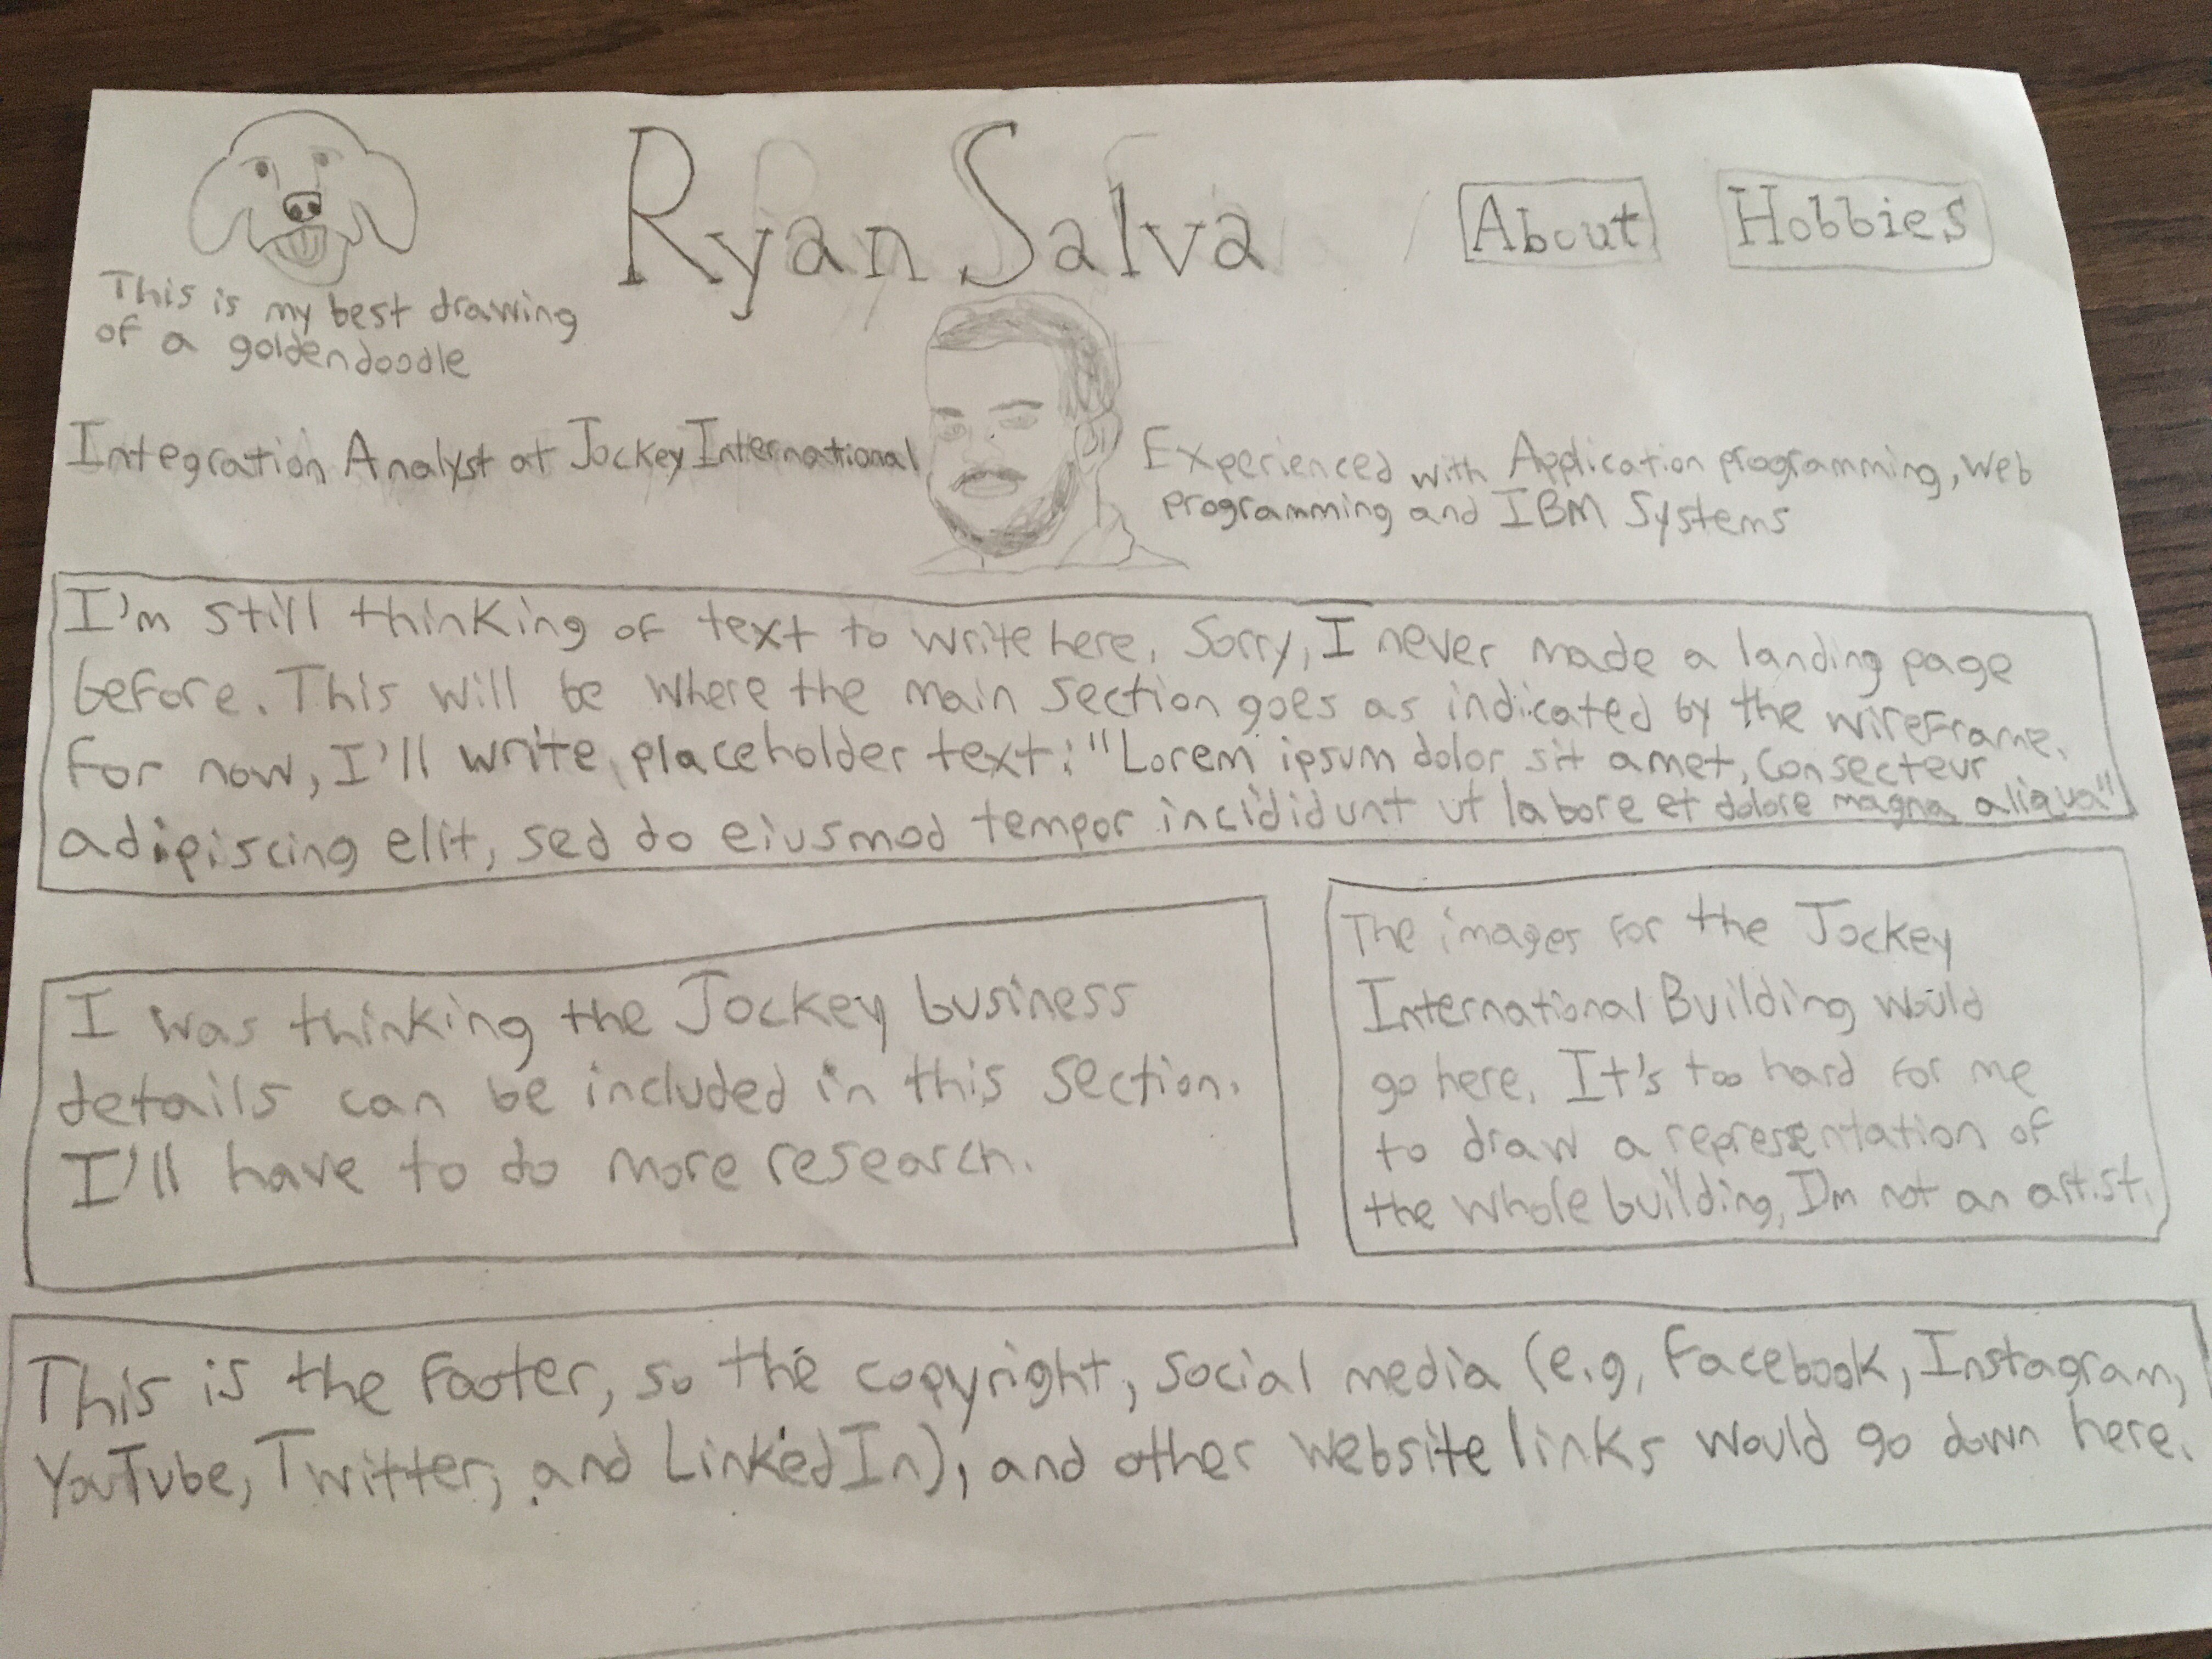 Ryan Salva
About
Hobbies
This is my best drawing
of a goldendoodle
Integration Analyst at Jockey International
Experienced with Application programming, web
programming and IBM Systems
I'm still thinking of text to write here. Sorry, I never made a landing page
before. This will be where the main section goes as indicated by the wireframe.
For now, I'll write placeholder text: "Lorem ipsum dolor sit amet, consecteur
adipiscing elit, sed do eiusmod tempor incididunt ut labore et dolore magna aliqua"
I was thinking the Jockey business
details can be included in this section.
I'll have to do more research.
The images for the Jockey
International Building would
go here. It's too hard for me
to draw a representation of
the whole building, I'm not an artist.
This is the footer, so the copyright, social media (e.g, Facebook, Instagram,
YouTube, Twitter, and LinkedIn), and other website links would go down here.